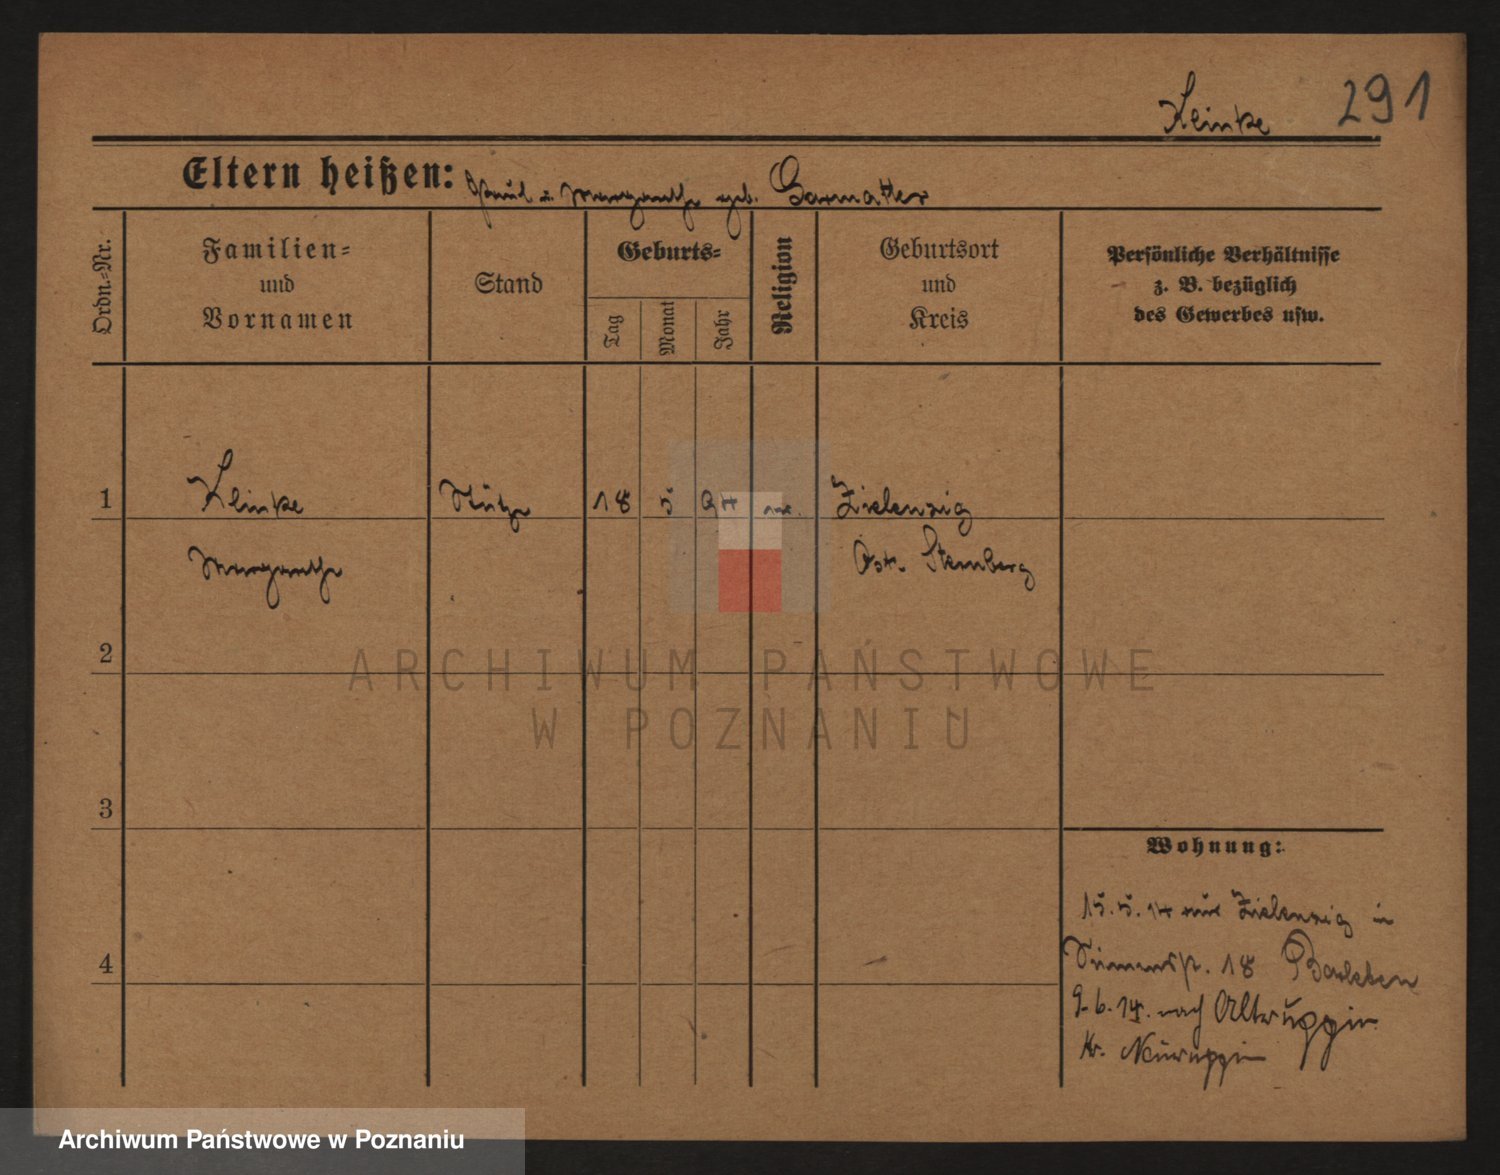 Klinke 291
Eltern heißen: Paul u. Margarethe geb. Garmatter
Ordn.=Nr.
Familien=
und
Vornamen
Stand
Geburts=
Tag
Monat
Jahr
Religion
Geburtsort
und
Kreis
Persönliche Verhältnisse
z. B. bezüglich
des Gewerbes usw.
1 Klinke Stütze 18 5 97 ev. Zielenzig
Margarethe Ost. Sternberg
2
3
4
Wohnung:
15. 5. 14 aus Zielenzig in
18
9. 6. 14. nach Altruppin
Kr. Neuruppin
ARCHIWUM PAŃSTWOWE
W POZNANIU
Archiwum Państwowe w Poznaniu